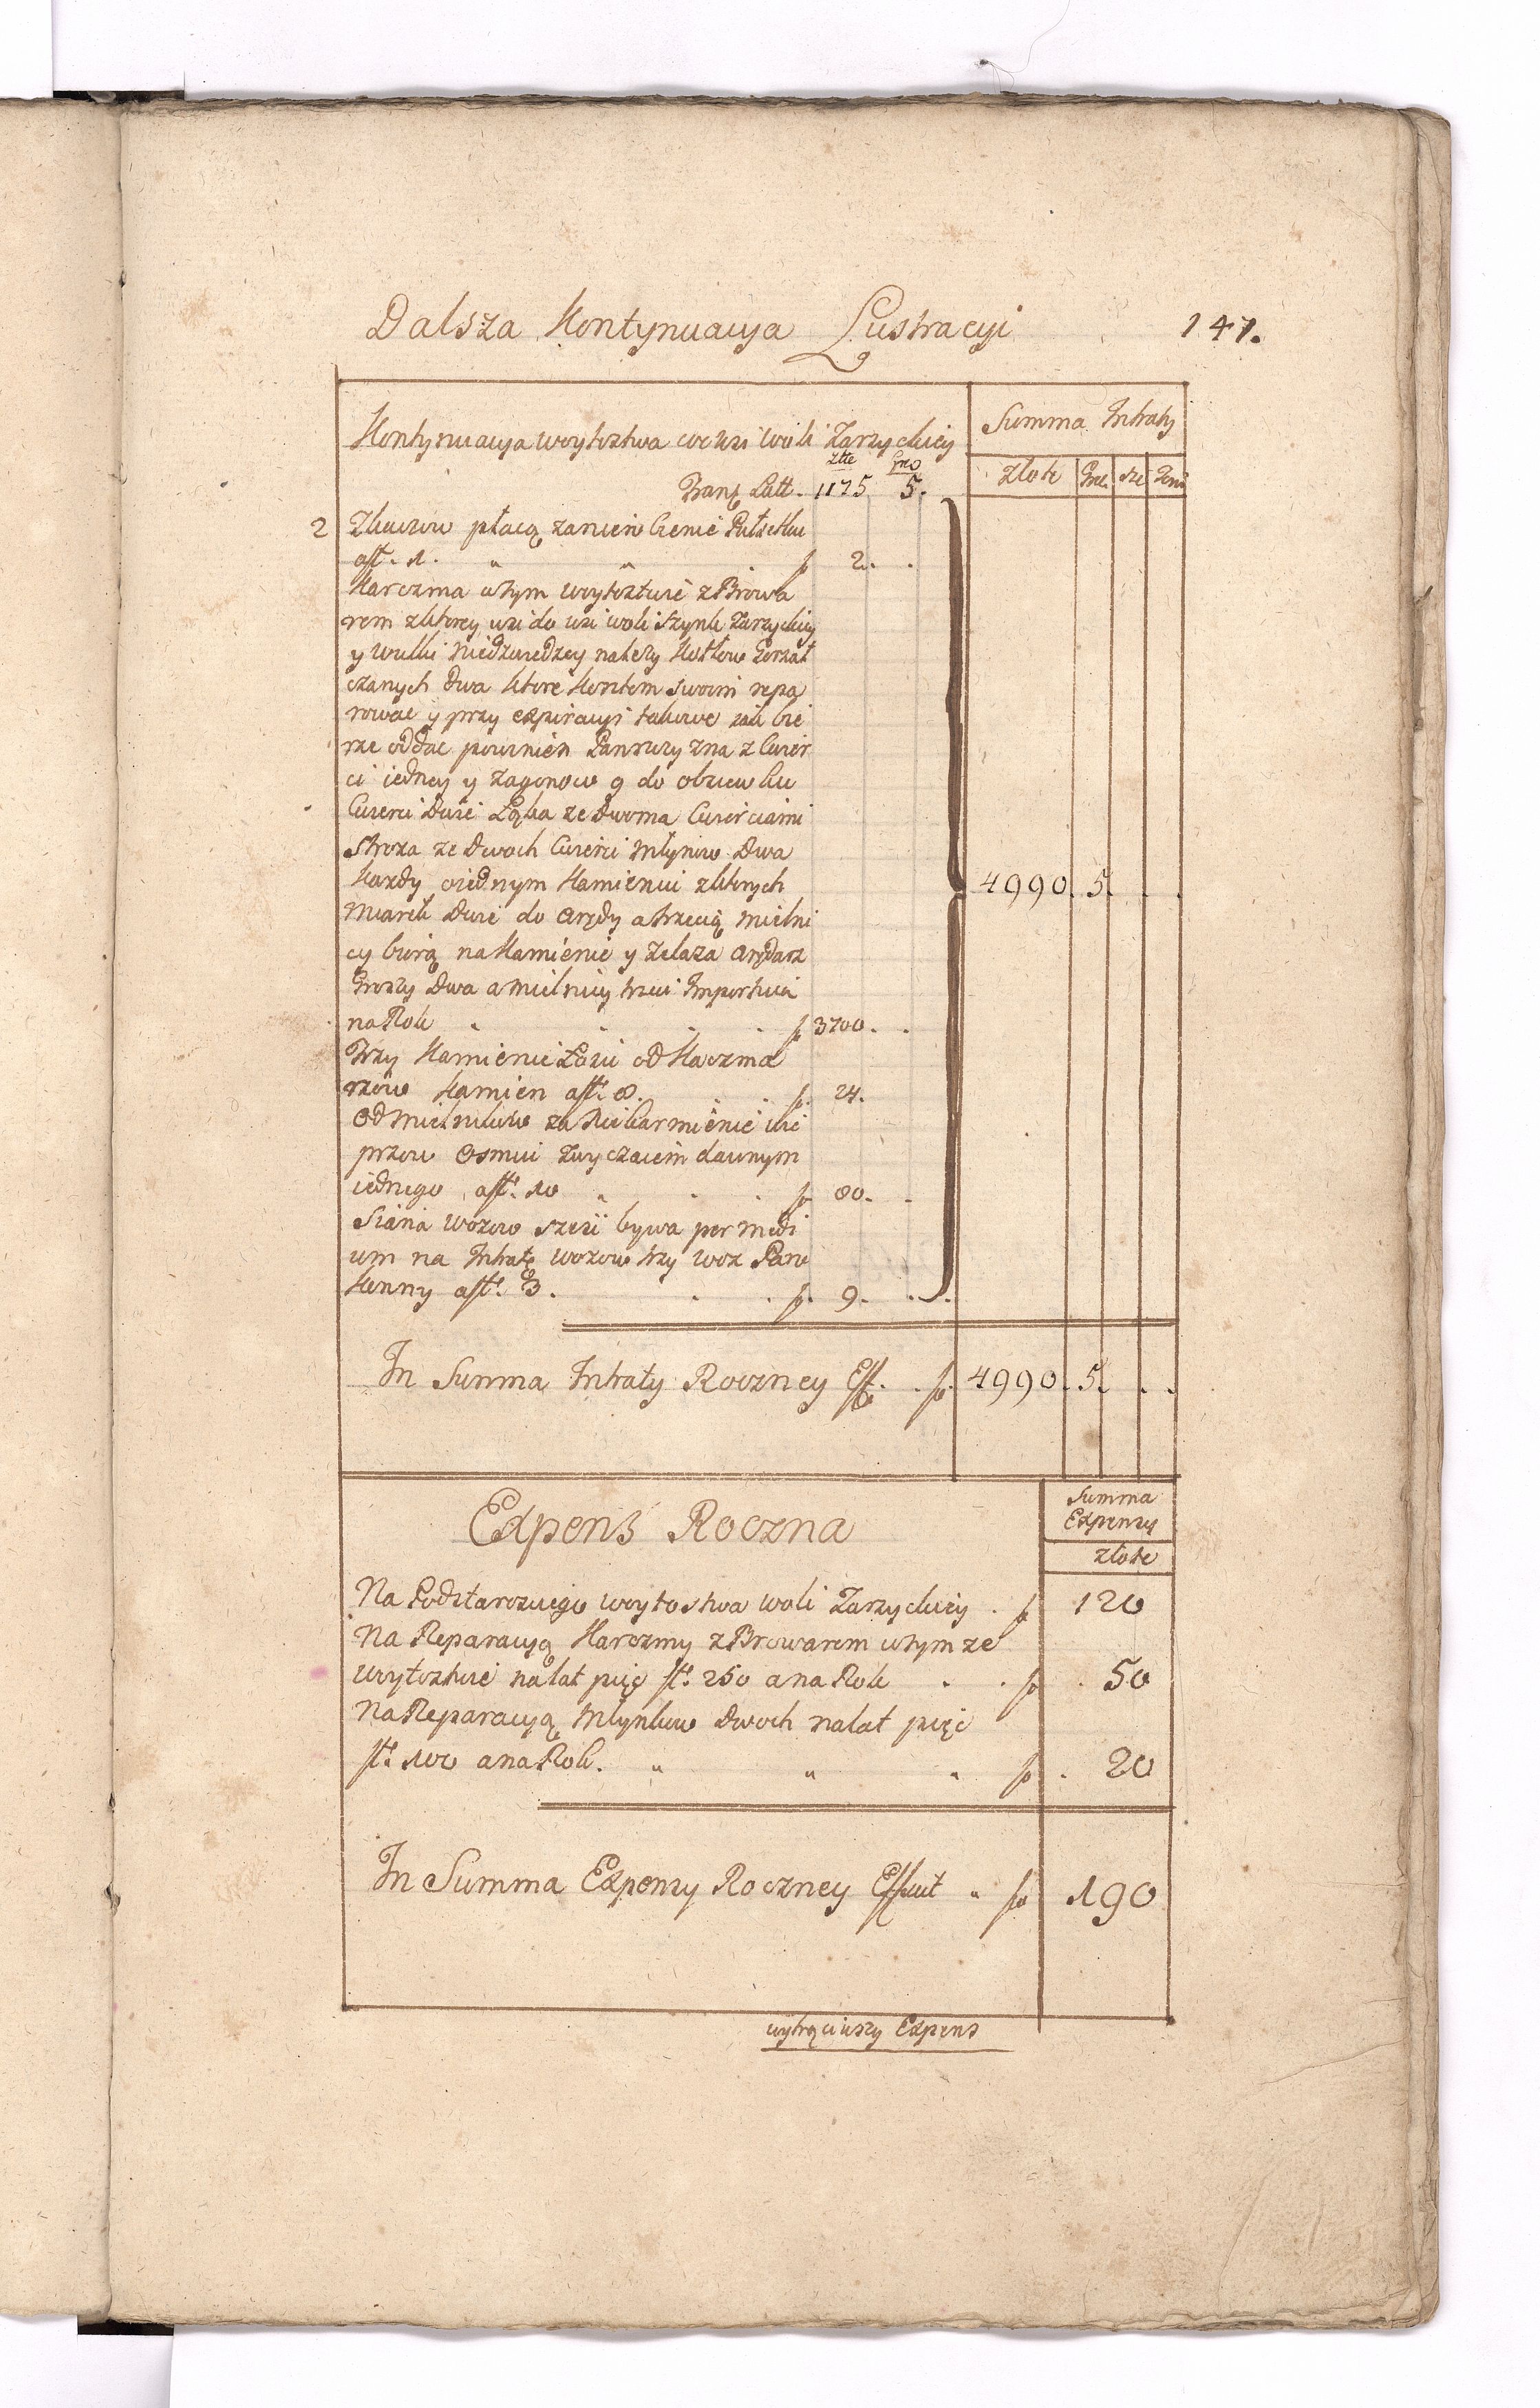 Dalsza Kontynuacya Lustracyi 147.
Kontynuacya woytoztwa we wsi woli Zarzyckiey
Summa Intraty
złte gro
Złote Gr. sze
Tran Latt. 1175 5.
2 płacą zamien
aft. 1. „ „ f 2. .
Karczma wtym woytoztwie z Browa
rem zktorey wsi do wsi woli Szynk Zarzyckiey
y wulki Niedzwiedzey nalezy Kotłow Gorzał
czanych dwa ktore Kosztem swoim repa
rowac y przy expiracyi takowe iak bie
rze oddac powinien Panszczyzna z cwier
ci iedney y zagonow 9 do obsiewku
cwierci dwie Łąka ze dwoma cwierciami
stroza ze dwoch cwierci Młynow dwa
Kazdy oiednym Kamieniu zktorych
4990. 5. . .
miarek dwie do arędy atrzecią mielni
cy biorą na Kamienie y zelaza arędarz
Groszy dwa amielnicy trzeci Importuie
na Rok „ . . . f 3700. .
Trzy Kamienie Łoiu od Karczma
rzów Kamien aft. 8. . . f. 24.
od Mielnikow za Niekarmienie wie
przow osmiu zwyczaiem dawnym
iednego aft. 10 „ . . f 80. .
Siana wozow szesć bywa per medi
um na Intratę wozow trzy woz Paro
Konny aft. 3. . . f. 9. . .
In Summa Intraty Roczney Eff. . f. 4990. 5. . .
Expens Roczna
Summa
Expensy
złote
Na Podstarosciego woytostwa woli Zarzyckiey . f 120
Na Reparacyą Karczmy z Browarem wtym ze
woytoztwie nalat pięć ft. 250 ana Rok . . f . 50
Na Reparacyą Młynkow dwoch nalat pięć
ft. 100 ana Rok. „ „ „ f . 20
In Summa Expensy Roczney Effect „ f 190
wytrąciwszy Expens